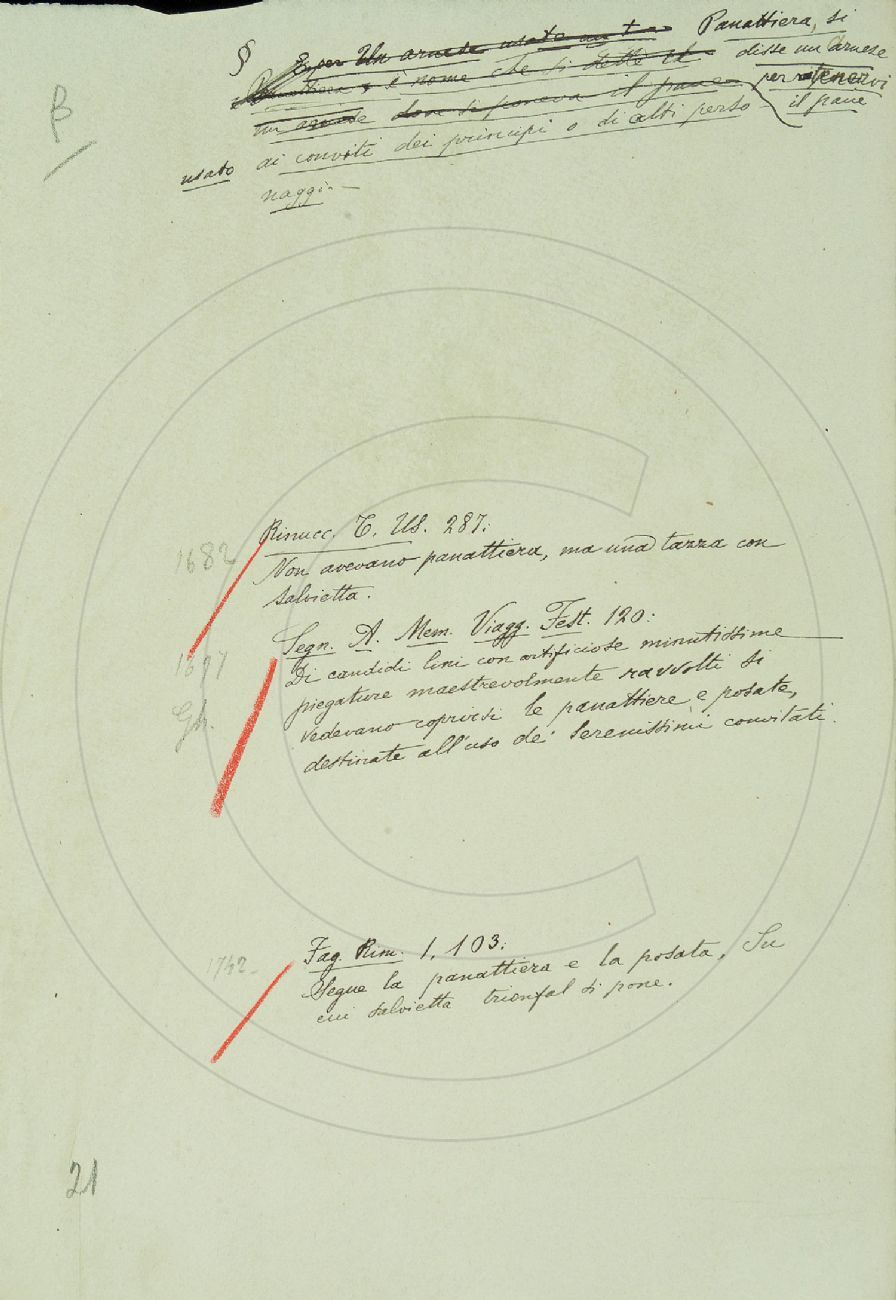 β
§ E per Un arnese usato Panattiera, si
Panattiera, è nome che si dette disse un Arnese
un arnese dove si poneva il pane per ritenervi
il pane
usato ai conviti dei principi o di altri perso
naggi. —
1682
Rinucc. C. Us. 287:
Non avevano panattiera, ma una tazza con
salvietta.
1697
Gh.
Segn. A. Mem. Viagg. Fest. 120:
Di candidi lini con artificiose minutissime
piegature maestrevolmente ravvolti si
vedevano coprirsi le panattiere e posate,
destinate all'uso de' Serenissimi convitati.
1742
Fag. Rim. 1, 103:
Segue la panattiera e la posata, Su
cui salvietta trionfal si pone.
21